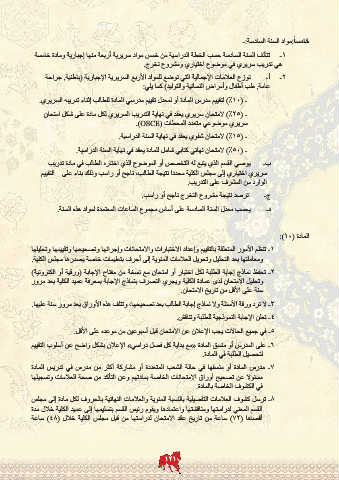 خامساً: مواد السنة السادسة:
١- تتألف السنة السادسة حسب الخطة الدراسية من خمس مواد سريرية أربعة منها إجبارية ومادة خامسة
هي تدريب سريري في موضوع اختياري ومشروع تخرج.
٢- أ- توزع العلامات الإجمالية التي توضع للمواد الأربع السريرية الإجبارية (باطنية، جراحة
عامة، طب أطفال وأمراض النسائية والتوليد) كما يلي:
- (١٠٪) لتقييم مدرس المادة أو لمعدل تقييم مدرسي المادة للطالب إثناء تدريبه السريري.
- (٢٥٪) لامتحان سريري يعقد في نهاية التدريب السريري لكل مادة على شكل امتحان
سريري موضوعي متعدد المحطات (OSCE).
- (١٥٪) لامتحان شفوي يعقد في نهاية السنة الدراسية.
- (٥٠٪) لامتحان نهائي كتابي شامل للمادة يعقد في نهاية السنة الدراسية.
ب- يوصي القسم الذي يتبع له التخصص أو الموضوع الذي اختاره الطالب في مادة تدريب
سريري اختياري إلى مجلس الكلية محدداً نتيجة الطالب، ناجح أو راسب وذلك بناء على التقييم
الوارد من المشرف على التدريب.
ج- ترصد نتيجة مشروع التخرج ناجح أو راسب.
د- يحسب معدل السنة السادسة على أساس مجموع الساعات المعتمدة لمواد هذه السنة.
المادة (١٠):
١- تنظم الأمور المتعلقة بالتقييم وإعداد الاختبارات والامتحانات وإجرائها وتصحيحها وتقييمها وتحليلها
ومعادلتها بعد التحليل وتحويل العلامات المئوية إلى أحرف بتعليمات خاصة يصدرها مجلس الكلية.
٢- تحفظ نماذج إجابة الطلبة لكل اختبار أو امتحان مع نسخة من مفتاح الإجابة (ورقية أو الكترونية)
وتحليل الامتحان لدى عمادة الكلية ويجري التصرف بنماذج الإجابة بمعرفة عميد الكلية بعد مرور
سنة على الأقل من تاريخ الامتحان.
٣- لا ترد ورقة الأسئلة ولا نماذج إجابة الطالب بعد تصحيحها، وتتلف هذه الأوراق بعد مرور سنة عليها.
٤- تعلن الإجابة النموذجية للطلبة وتناقش.
٥- في جميع الحالات يجب الإعلان عن الامتحان قبل أسبوعين من موعده على الأقل.
٦- على المدرس أو منسق المادة (مع بداية كل فصل دراسي) الإعلان بشكل واضح عن أسلوب التقييم
لتحصيل الطلبة في المادة.
٧- مدرس المادة أو منسقها في حالة الشعب المتعددة أو مشاركة أكثر من مدرس في تدريس المادة
مسئولاً عن تصحيح أوراق الامتحانات الخاصة بمادتهم وعن التأكد من صحة العلامات وتسجيلها
في الكشوف الخاصة بالمادة.
٨- ترسل كشوف العلامات التفصيلية بالنسبة المئوية والعلامات النهائية بالحروف لكل مادة إلى مجلس
القسم المعني لدراستها ومناقشتها واعتمادها ويقوم رئيس القسم بتسليمها إلى عميد الكلية خلال مدة
أقصاها (٧٢) ساعة من تاريخ عقد الامتحان لدراستها من قبل مجلس الكلية خلال (٤٨) ساعة